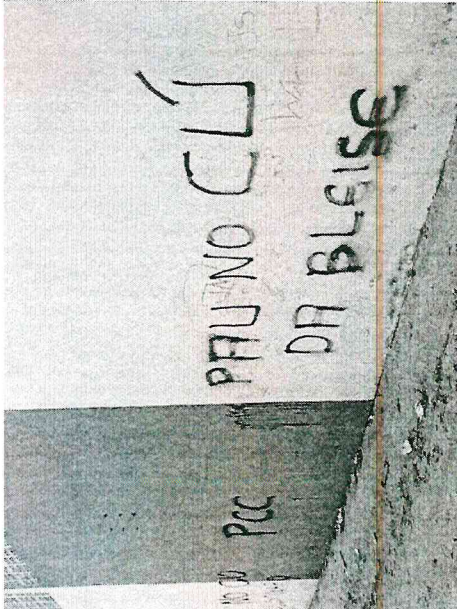 PCC
PAU NO CÚ
DA BLEISE